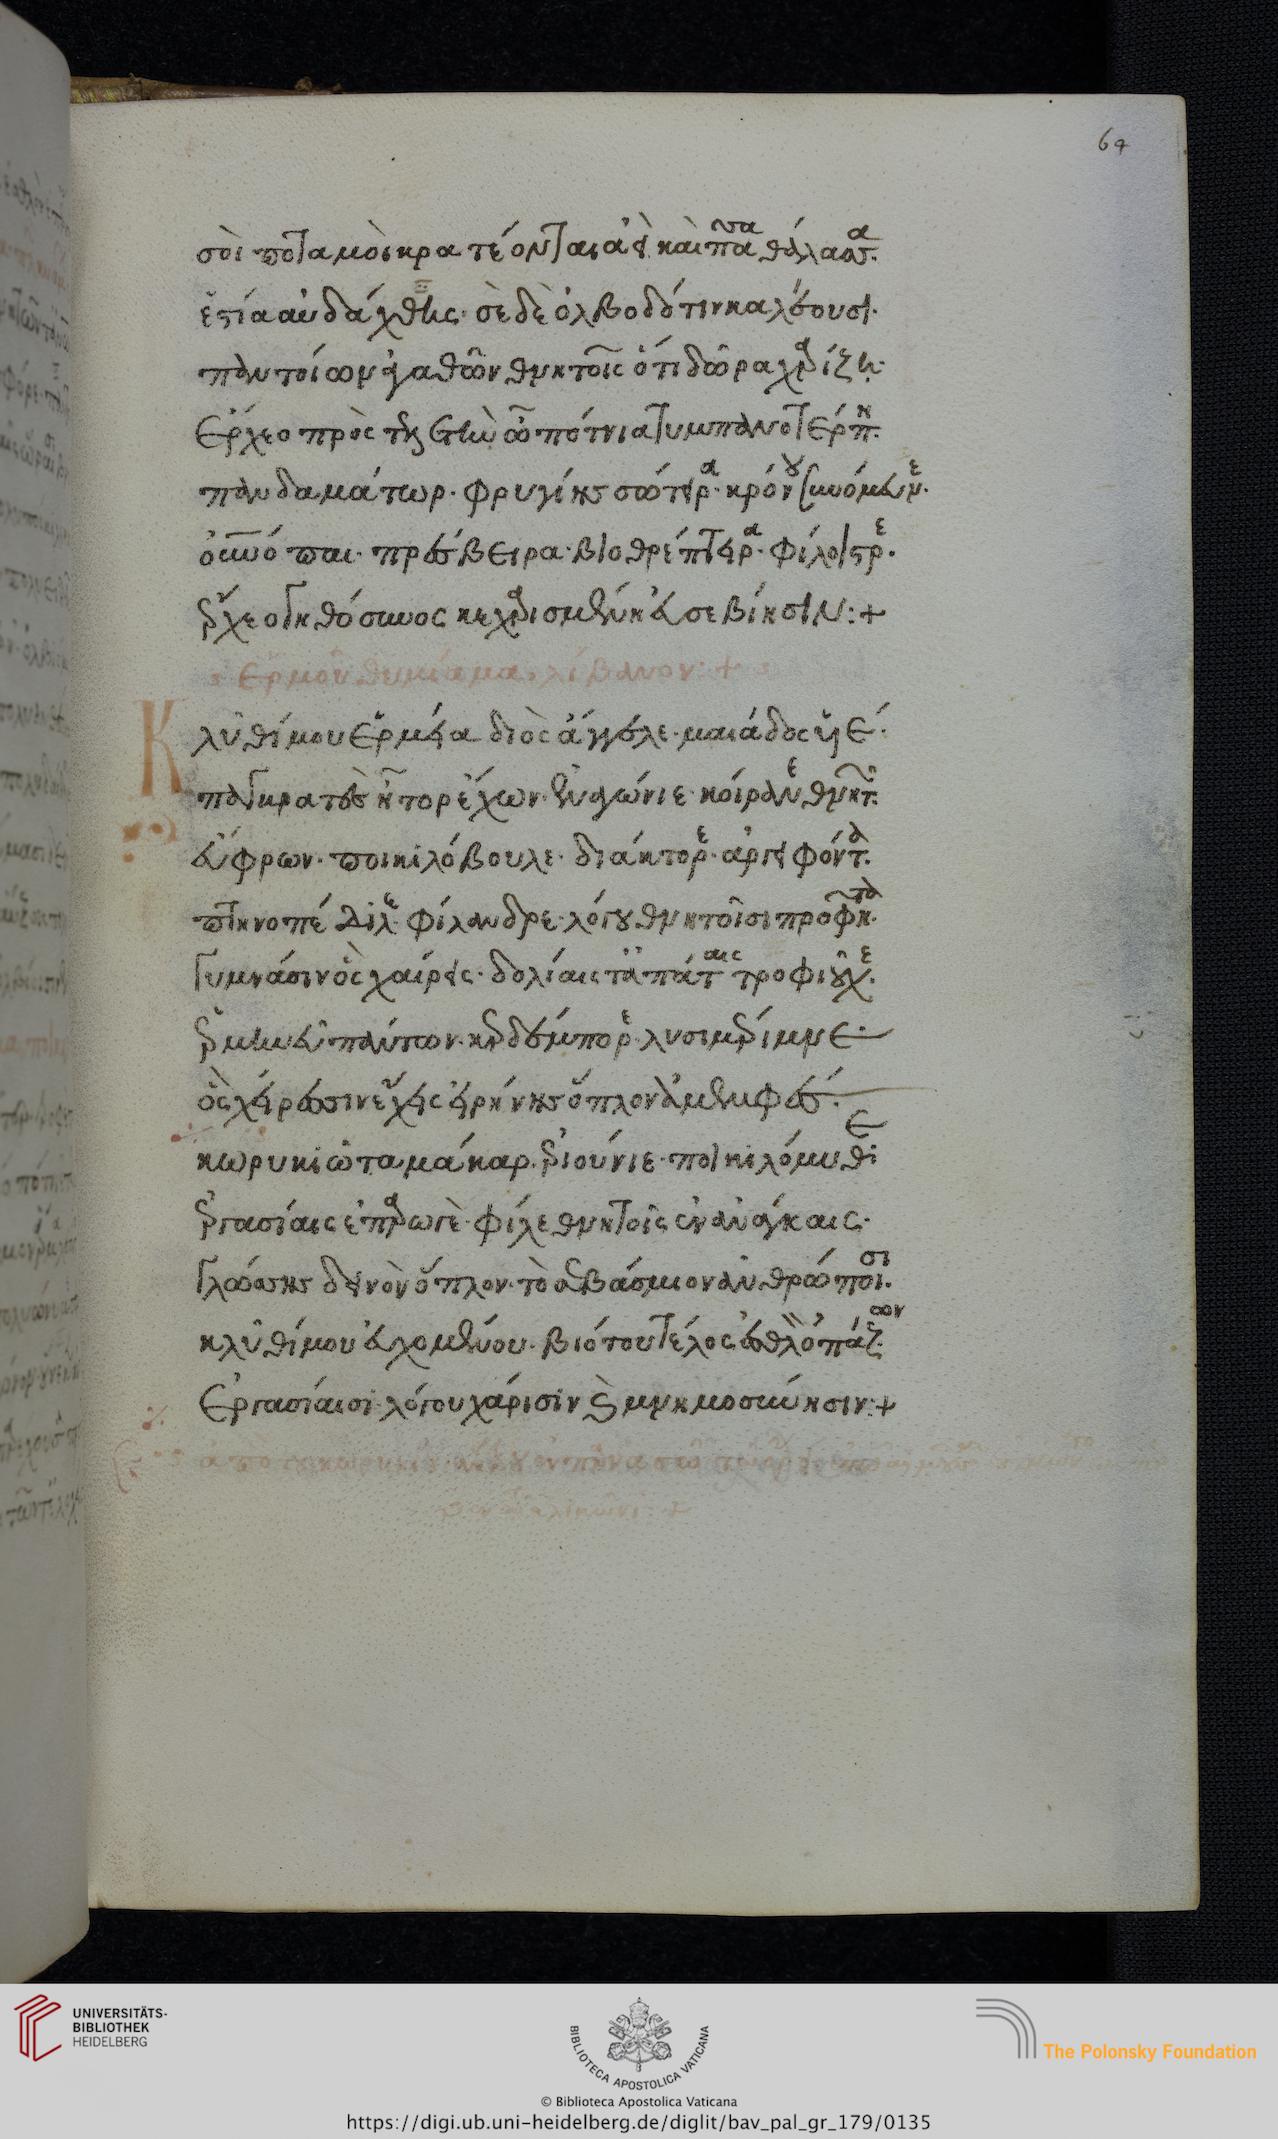 64
σοὶ ποταμοὶ κρατέονται ἀεὶ καὶ πᾶσα θάλασσα.
ἑστία αὐδαχθεῖς· σὲ δὲ ὀλβοδότιν καλέουσι·
παντοίων ἀγαθῶν θνητοῖς ὅτι δῶρα χαρίζῃ·
Ἔρχεο πρὸς τελετὴν ὦ πότνια τυμπανοτερπή.
πανδαμάτωρ. φρυγίης σώτειρα. κρόνου συνόμευνε.
οὐνόπαι. πρέσβειρα. βιοθρέπτειρα. φίλοιστρε.
ἔρχεο γηθόσυνος κεχαρισμένη εὐσεβίησιν :+
Ἑρμοῦ θυμίαμα, λίβανον :+
Κλῦθί μου Ἑρμεία διὸς ἄγγελε. μαιάδος υἱέ.
παγκρατὲς ἦτορ ἔχων. ἐναγώνιε. κοίρανε θνητῶν.
εὔφρων. ποικιλόβουλε. διάκτορε. ἀργειφόντα.
πτηνοπέδιλε φίλανδρε. λόγου θνητοῖσι προφῆτα.
Γυμνάσιν ὃς χαίρεις. δολίαις τ' ἀπάταις τροφιοῦχε.
ἑρμηνεῦ πάντων. κερδέμπορε. λυσιμέριμνε.
ὃς χείρεσσιν ἔχεις εἰρήνης ὅπλον ἀμεμφές.
κωρυκιῶτα μάκαρ. ἐριούνιε. ποικιλόμυθε
ἐργασίαις ἐπαρωγὲ. φίλε θνητοῖς ἐν ἀνάγκαις.
Γλώσσης δεινὸν ὅπλον. τὸ σεβάσμιον ἀνθρώποισι.
κλῦθί μου εὐχομένου. βιότου τέλος ἐσθλὸν ὀπάζων.
Ἐργασίαισι. λόγου χάρισιν καὶ μνημοσύνησιν :+
UNIVERSITÄTS-
BIBLIOTHEK
HEIDELBERG
BIBLIOTECA APOSTOLICA VATICANA
© Biblioteca Apostolica Vaticana
The Polonsky Foundation
https://digi.ub.uni-heidelberg.de/diglit/bav_pal_gr_179/0135